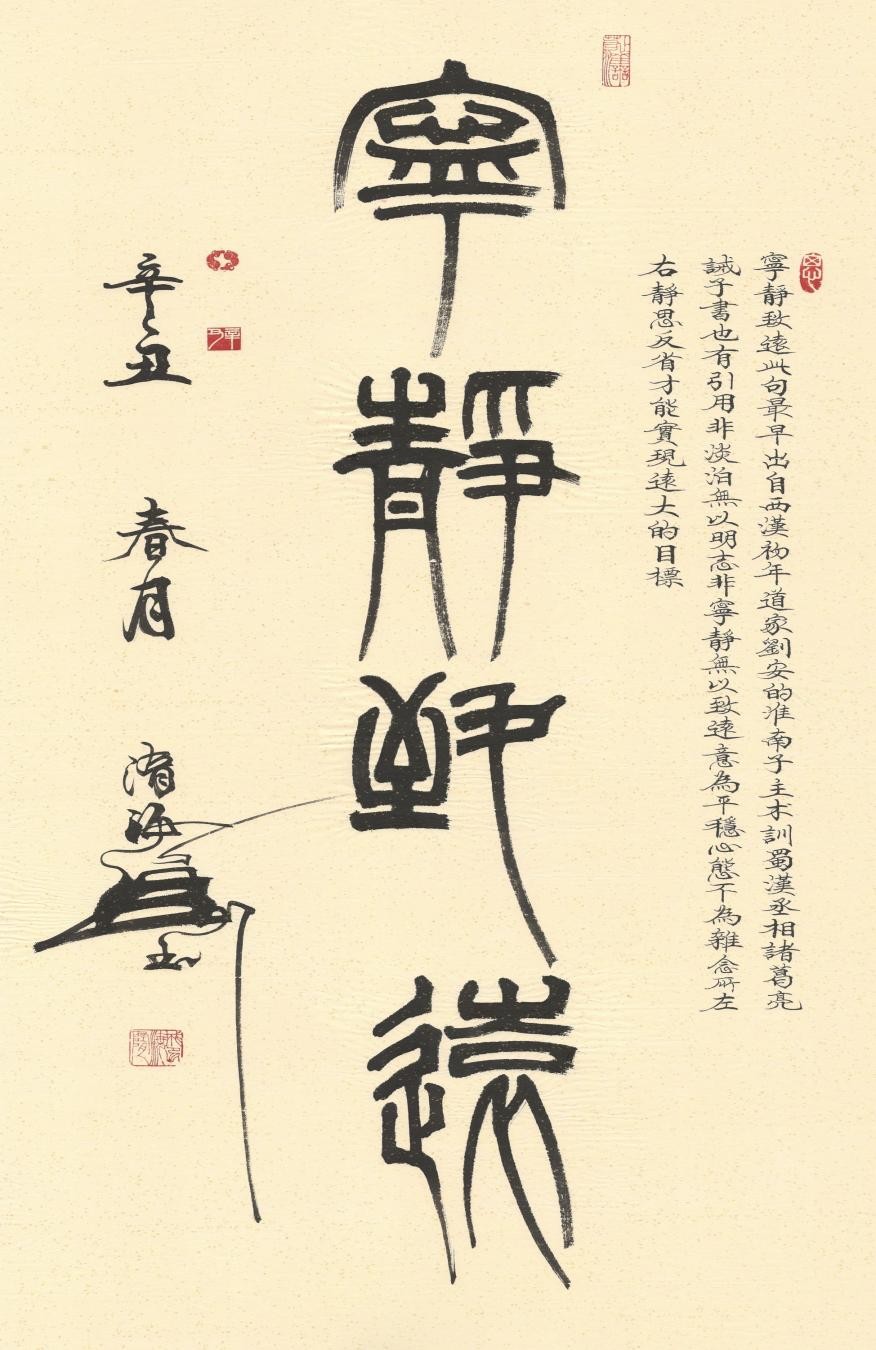 寧靜致遠此句最早出自西漢初年道家劉安的淮南子主术訓蜀漢丞相諸葛亮
誡子書也有引用非淡泊無以明志非寧靜無以致遠意為平穩心態不為雜念所左
右靜思反省才能實現遠大的目標
寧靜致遠
辛丑 春月